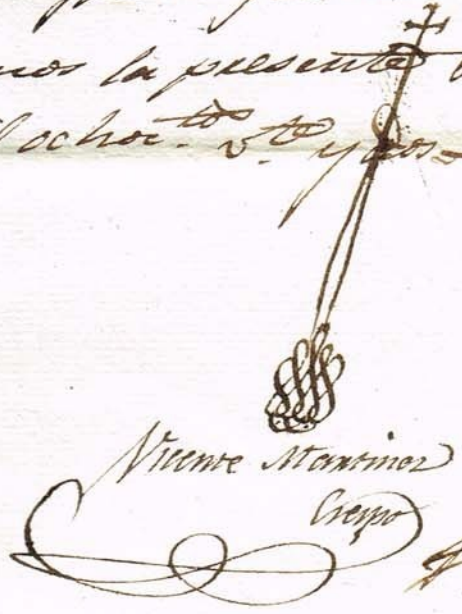 mos la presente
ochoc.tos v.te y dos
Vicente Martinez
Crespo